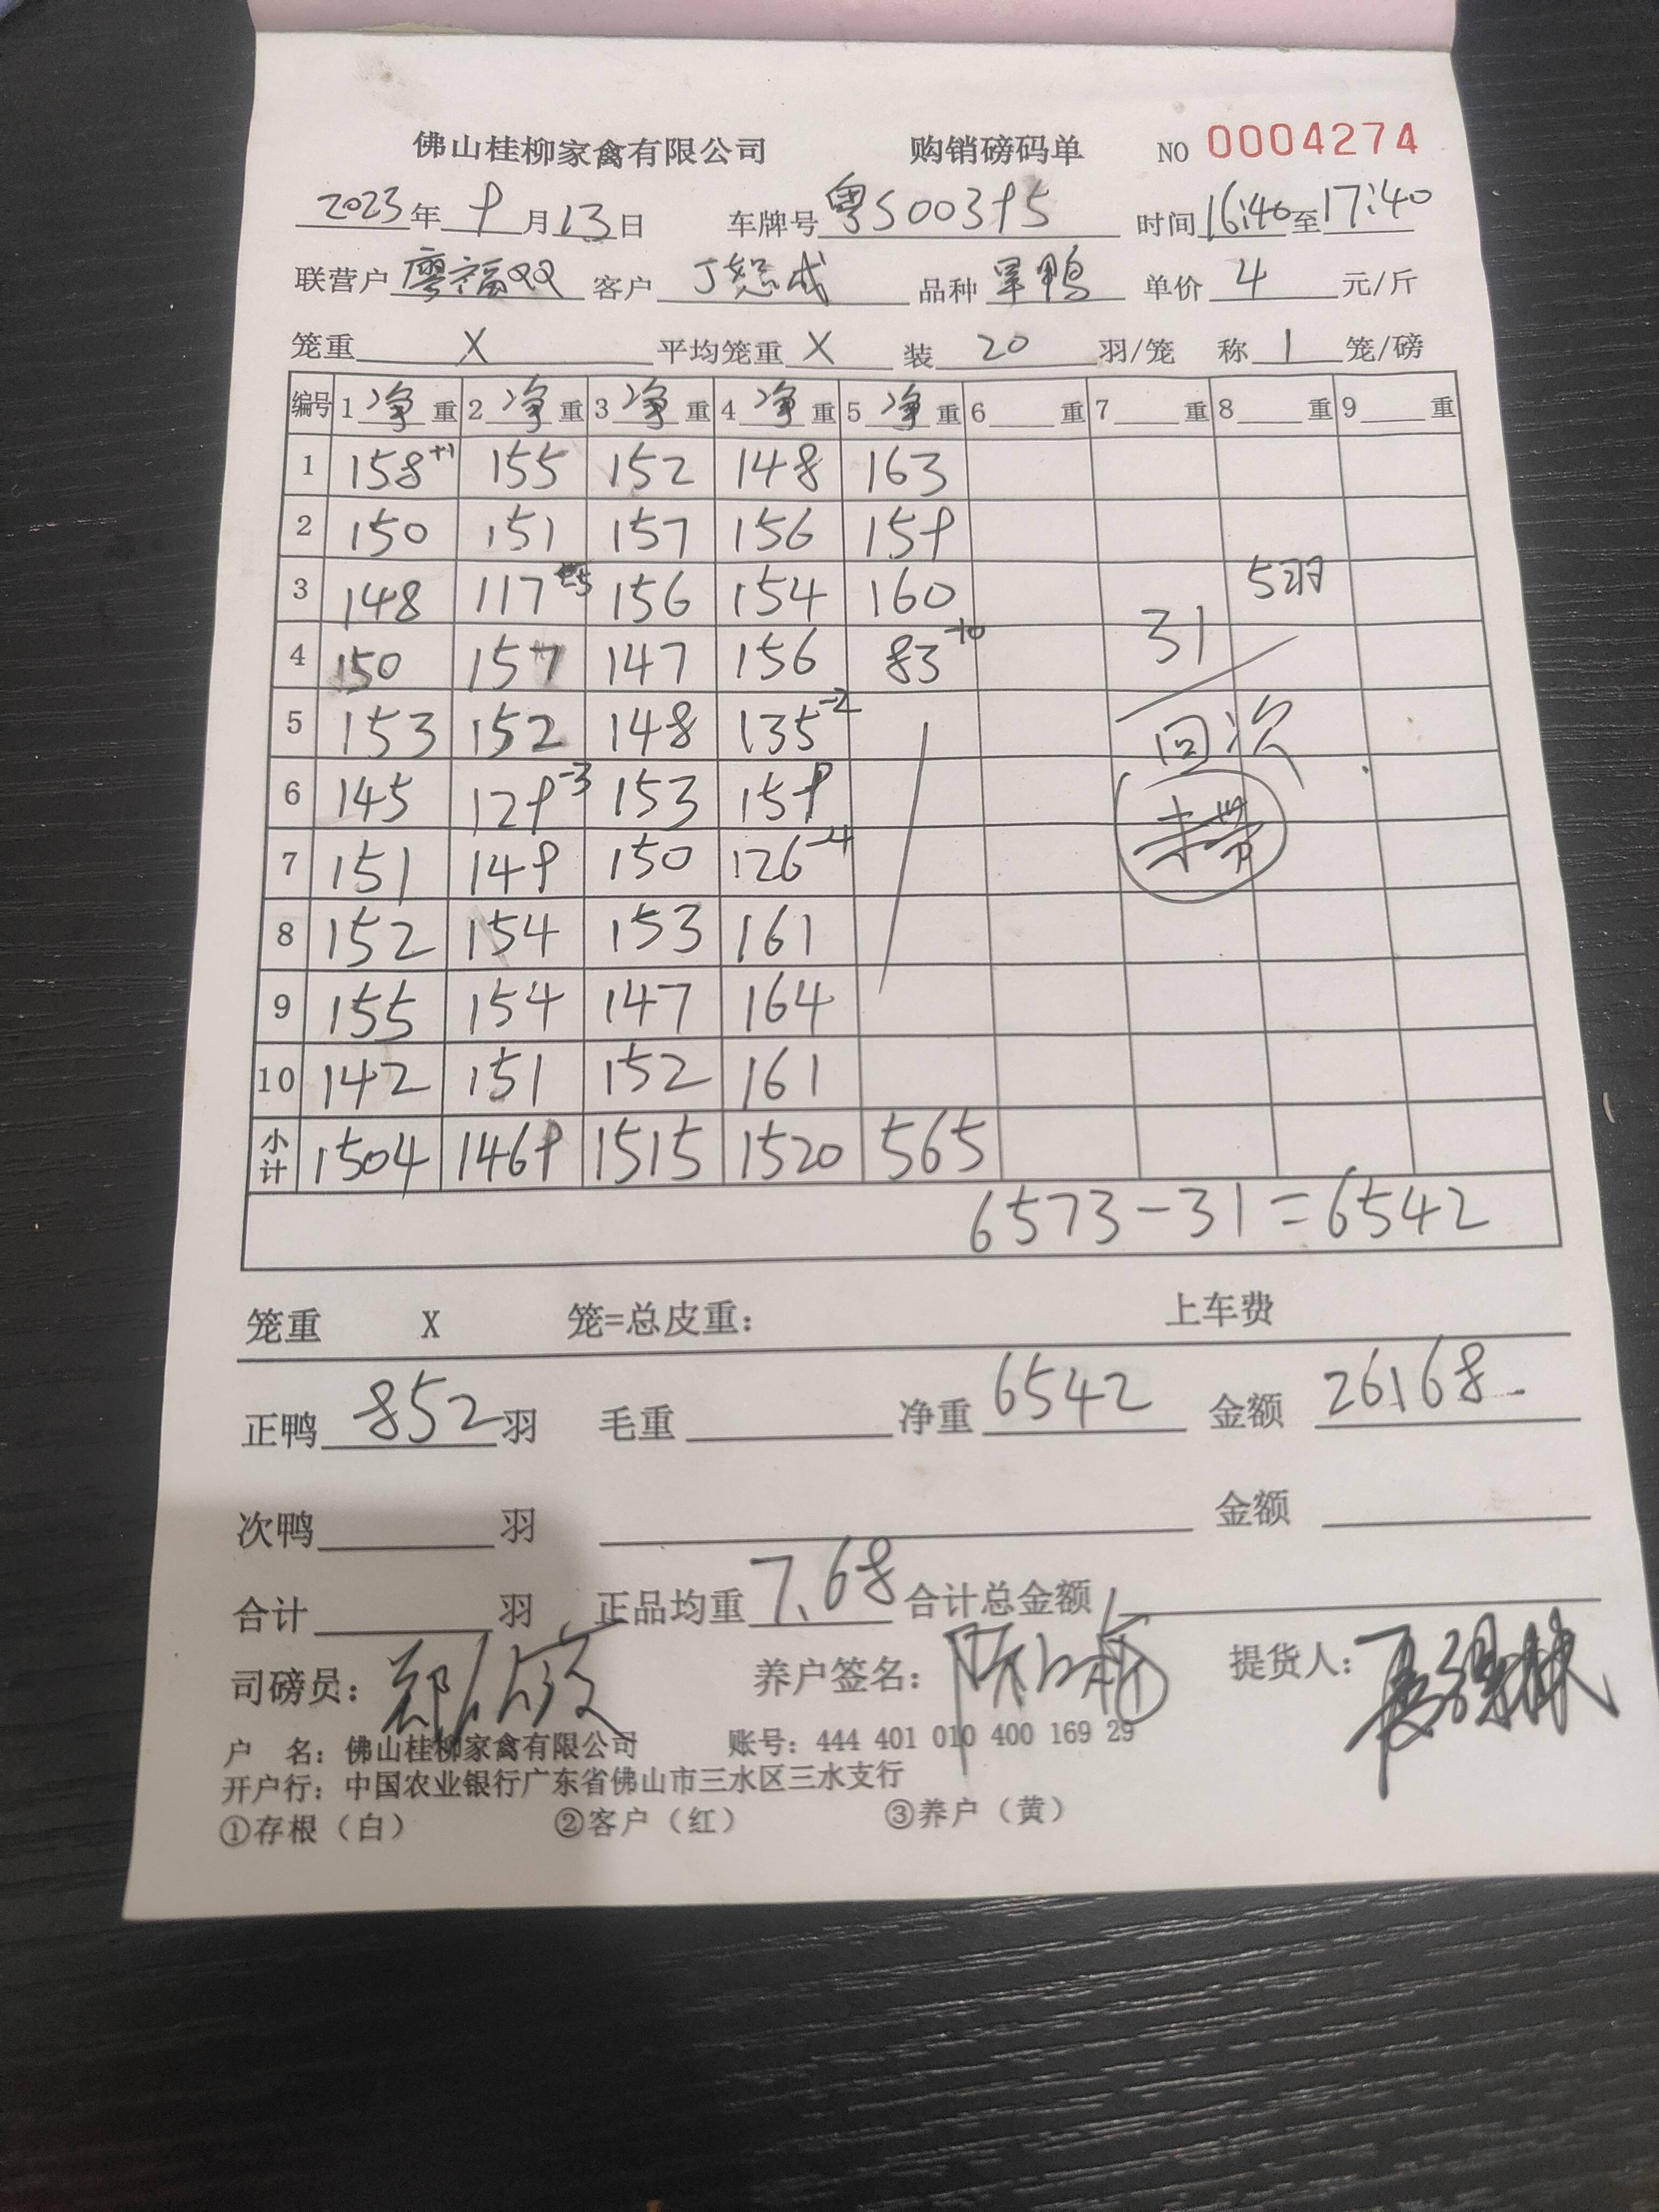 佛山桂柳家禽有限公司 购销磅码单 NO 0004274
2023年 9月13日 车牌号粤S00395 时间16:40至17:40
联营户廖福双 客户 丁 成 品种 鸭 单价 4 元/斤
笼重 X 平均笼重 X 装 20 羽/笼 称 1 笼/磅
编号 1 净 重 2 净 重 3 净 重 4 净 重 5 净 重 6 重 7 重 8 重 9 重
1 158+1 155 152 148 163
2 150 151 157 156 159
3 148 117-5 156 154 160 5羽
4 150 157 147 156 83-10 31
5 153 152 148 135-2 回次
6 145 129-3 153 159
7 151 149 150 126-4 未带
8 152 154 153 161
9 155 154 147 164
10 142 151 152 161
小计 1504 1469 1515 1520 565
6573-31=6542
笼重 X 笼=总皮重： 上车费
正鸭 852 羽 毛重 净重 6542 金额 26168
次鸭 羽 金额
合计 羽 正品均重 7.68 合计总金额
司磅员： 养户签名： 提货人：
户 名：佛山桂柳家禽有限公司 账号：444 401 010 400 169 29
开户行：中国农业银行广东省佛山市三水区三水支行
①存根（白） ②客户（红） ③养户（黄）